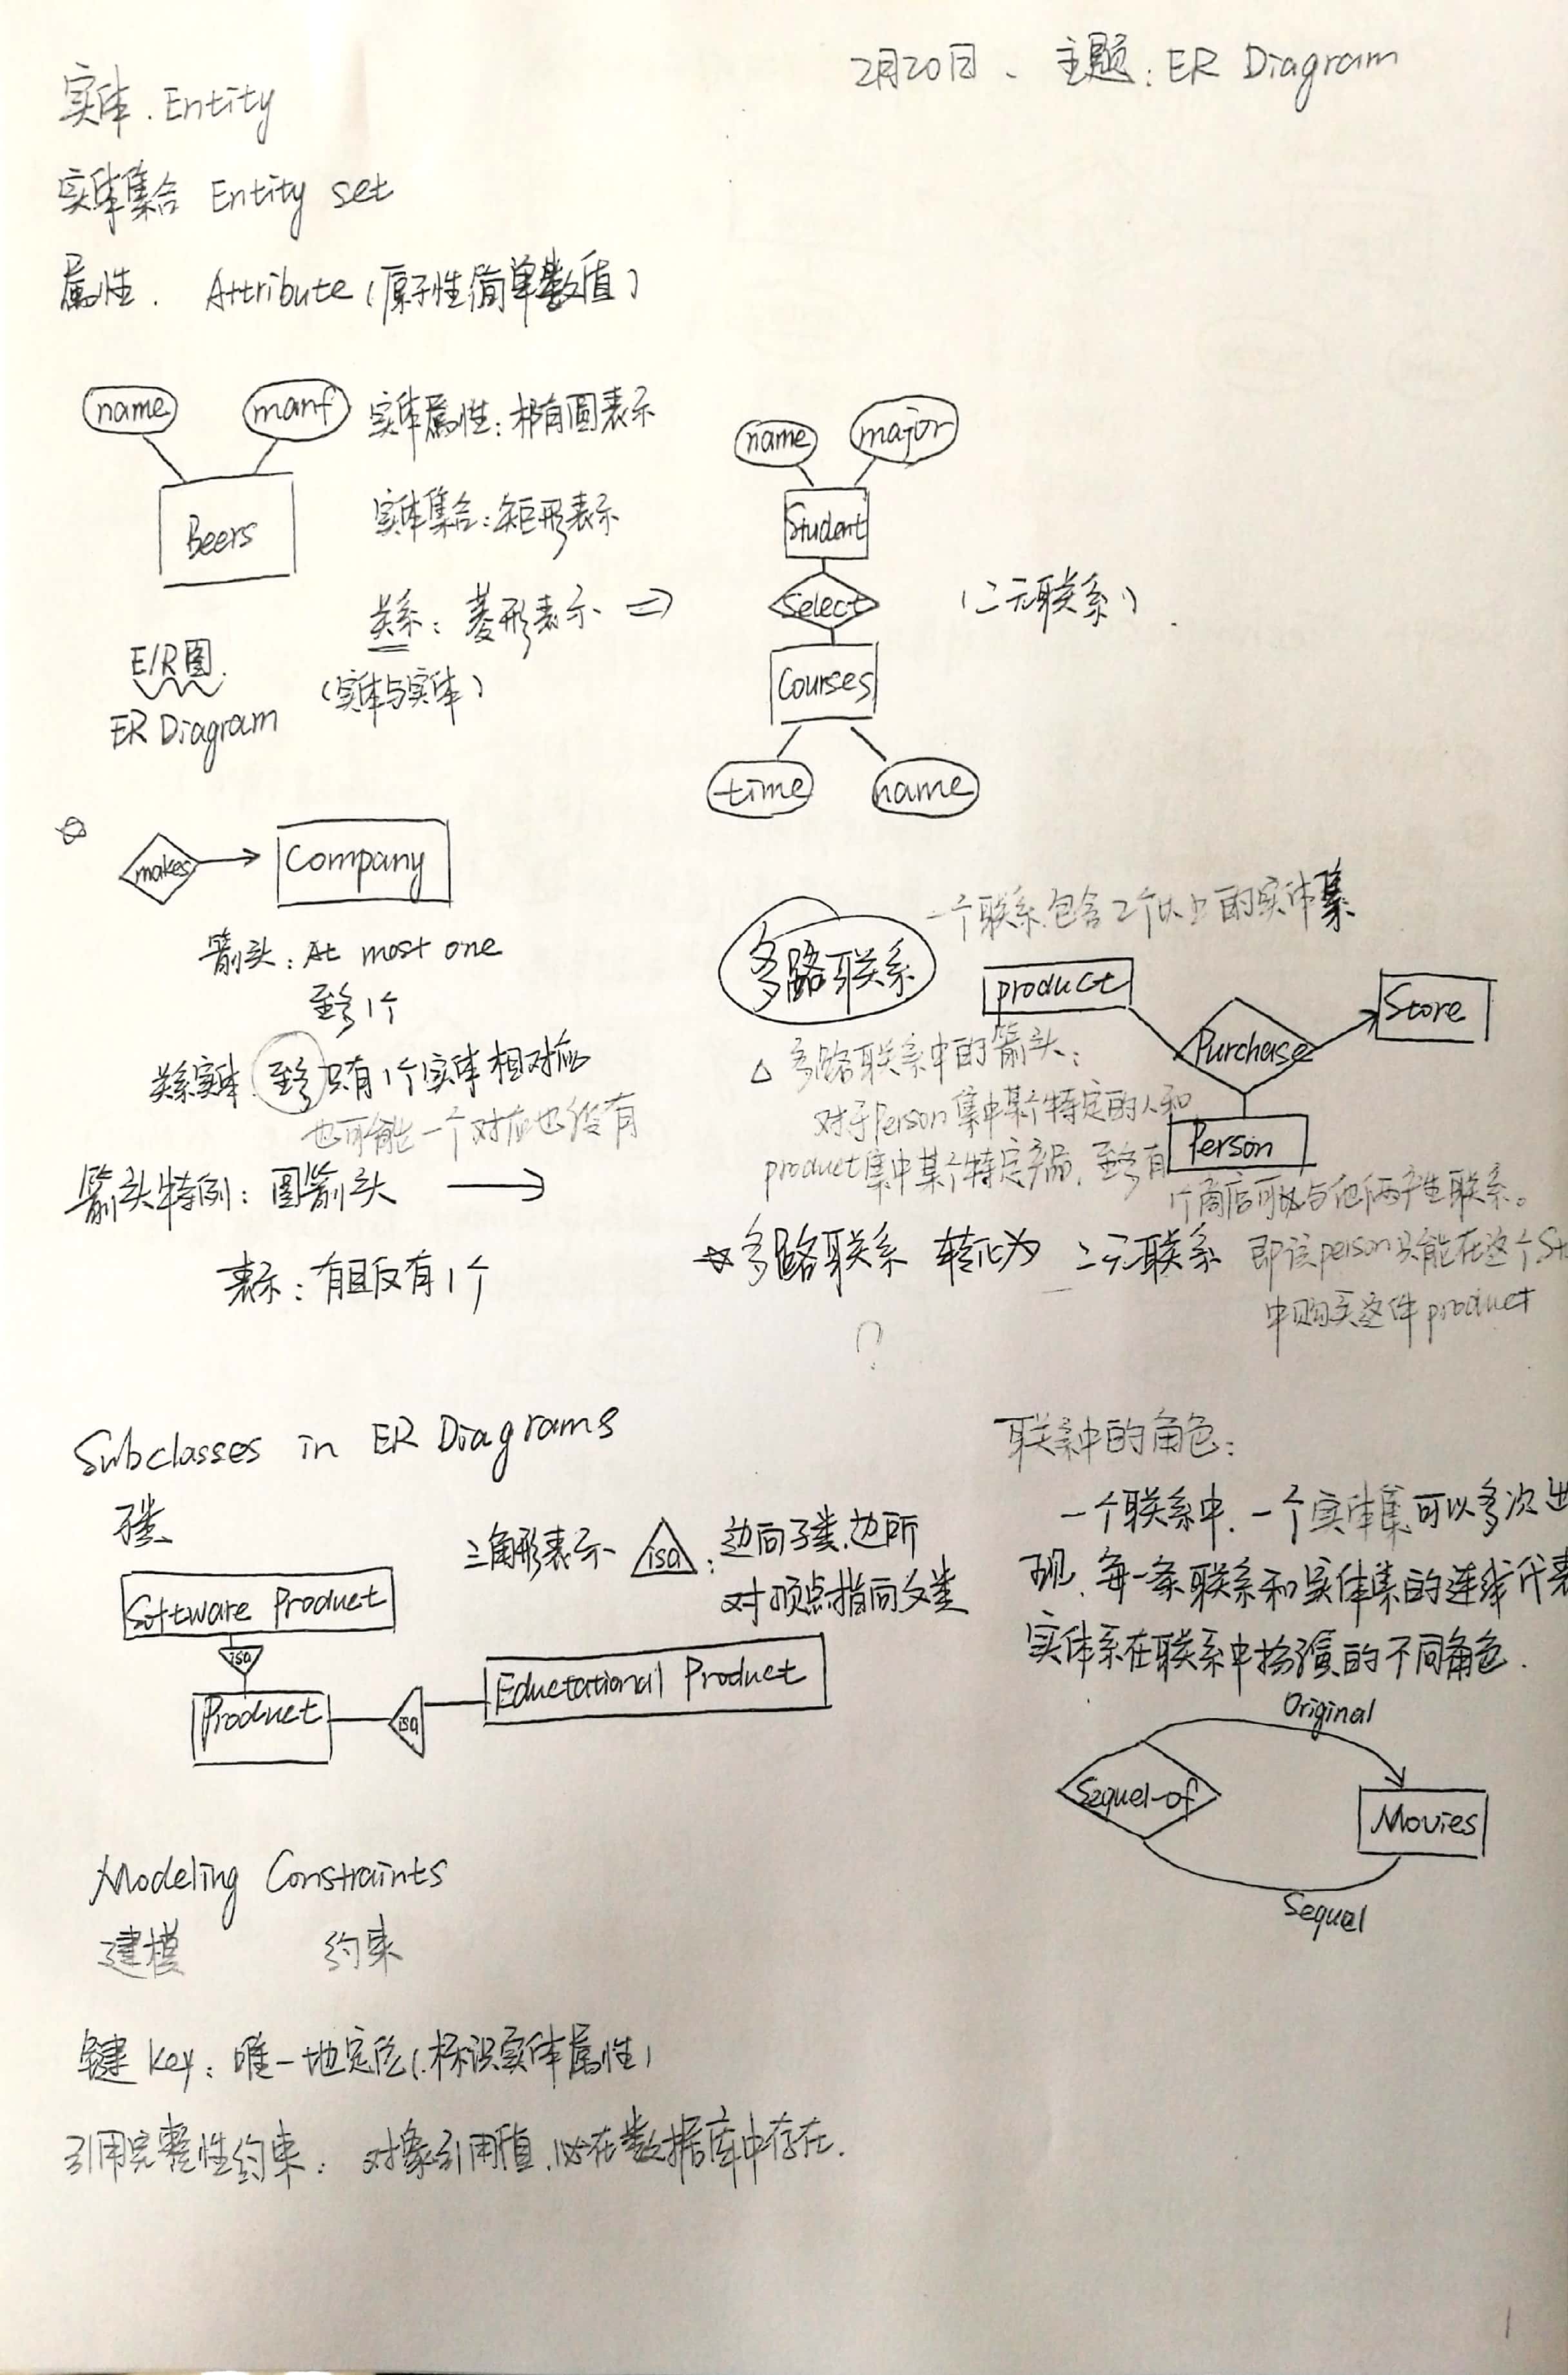 2月20日、主题:ER Diagram
实体.Entity
实体集合 Entity set
属性. Attribute(原子性简单数值)
name
manf
Beers
实体属性:椭圆表示
实体集合:矩形表示
关系:菱形表示 ⇒
(实体与实体)
E/R图.
ER Diagram
name
major
Student
Select
(二元联系).
Courses
time
name
makes
Company
箭头:At most one
至多1个
关系实体 至多只有1个实体相对应
也可能一个对应也没有
箭头特例:圆箭头
表示:有且仅有1个
多路联系
一个联系包含2个以上的实体集
product
Purchase
Store
Person
△ 多路联系中的箭头:
对于Person集中某个特定的人和
product集中某个特定产品,至多有
1个商店可以与他俩产生联系。
即该person只能在这个St
中购买这件product
☆多路联系 转化为 二元联系
?
Subclasses in ER Diagrams
子类
三角形表示 isa:边向子类,边所
对顶点指向父类
Software Product
isa
Product
isa
Eductational Product
联系中的角色:
一个联系中,一个实体集可以多次出
现,每一条联系和实体集的连线代表
实体系在联系中扮演的不同角色.
Original
Sequel-of
Movies
Sequel
Modeling Constraints
建模 约束
键 key:唯一地定位(标识实体属性)
引用完整性约束:对象引用值,必在数据库中存在.
1